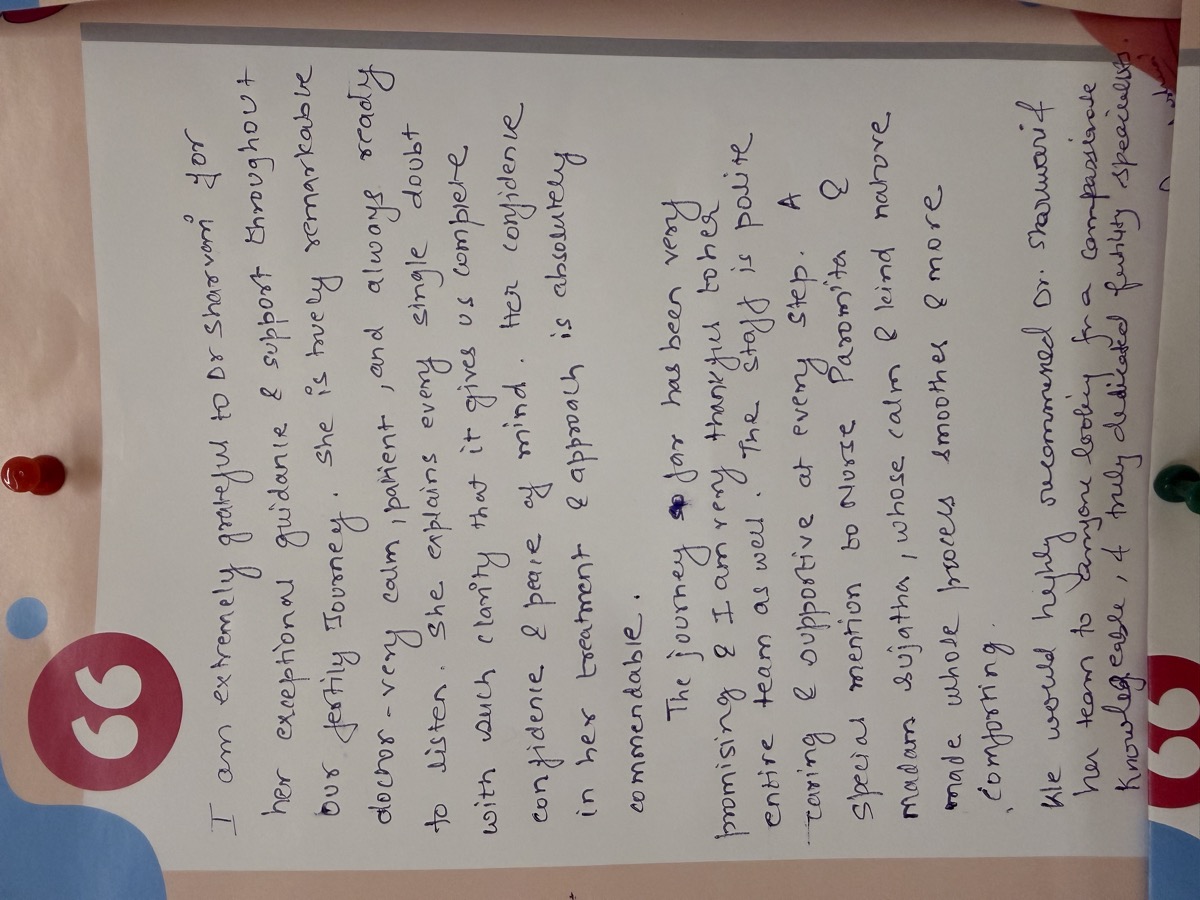 I am extremely grateful to Dr sharvani for
her exceptional guidance & support throughout
our fertily Journey. she is truely remarkable
doctor - very calm, patient, and always ready
to listen. She explains every single doubt
with such clarity that it gives us complete
confidence & peace of mind. Her confidence
in her treatment & approach is absolutely
commendable.
The journey so far has been very
promising & I am very thankful to her
entire team as well. The staff is polite
caring & supportive at every step. A
special mention to Nurse Paromita &
madam sujatha, whose calm & kind nature
made whole process smoother & more
comforting.
We would highly recommend Dr. sharwari &
her team to anyone looking for a compassionate
knowledgeable, & truly dedicated fertility specialists.